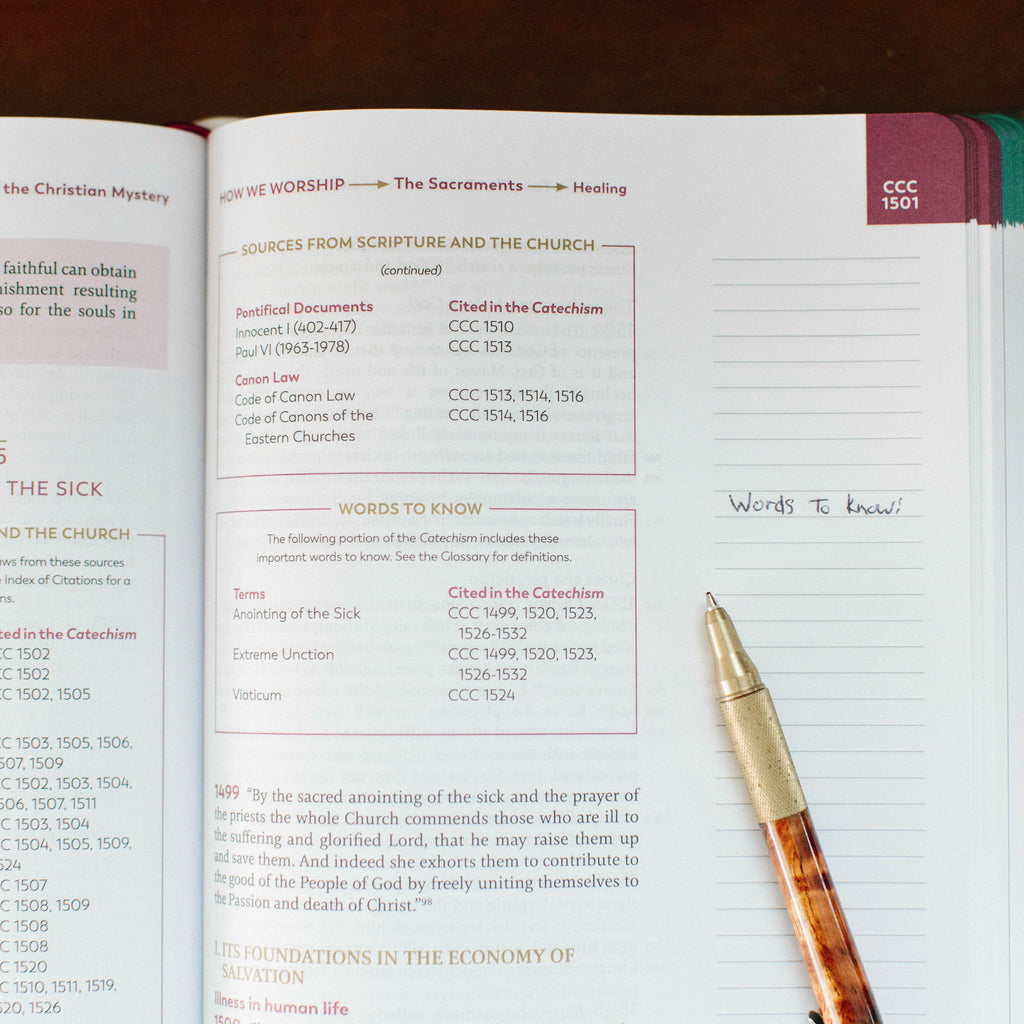 the Christian Mystery
faithful can obtain
resulting
for the souls in
5
THE SICK
ND THE CHURCH
from these sources
Index of Citations for a
ns.
ted in the Catechism
CC 1502
CC 1502
CC 1502, 1505
CC 1503, 1505, 1506,
507, 1509
CC 1502, 1503, 1504,
506, 1507, 1511
CC 1503, 1504
CC 1504, 1505, 1509,
524
CC 1507
CC 1508, 1509
CC 1508
CC 1508
CC 1520
CC 1510, 1511, 1519,
520, 1526
HOW WE WORSHIP → The Sacraments → Healing
CCC
1501
SOURCES FROM SCRIPTURE AND THE CHURCH
(continued)
Pontifical Documents Cited in the Catechism
Innocent I (402-417) CCC 1510
Paul VI (1963-1978) CCC 1513
Canon Law
Code of Canon Law CCC 1513, 1514, 1516
Code of Canons of the CCC 1514, 1516
Eastern Churches
WORDS TO KNOW
The following portion of the Catechism includes these
important words to know. See the Glossary for definitions.
Terms Cited in the Catechism
Anointing of the Sick CCC 1499, 1520, 1523,
1526-1532
Extreme Unction CCC 1499, 1520, 1523,
1526-1532
Viaticum CCC 1524
1499 “By the sacred anointing of the sick and the prayer of
the priests the whole Church commends those who are ill to
the suffering and glorified Lord, that he may raise them up
and save them. And indeed she exhorts them to contribute to
the good of the People of God by freely uniting themselves to
the Passion and death of Christ.”98
I. ITS FOUNDATIONS IN THE ECONOMY OF
SALVATION
Illness in human life
1500
Words To Know: